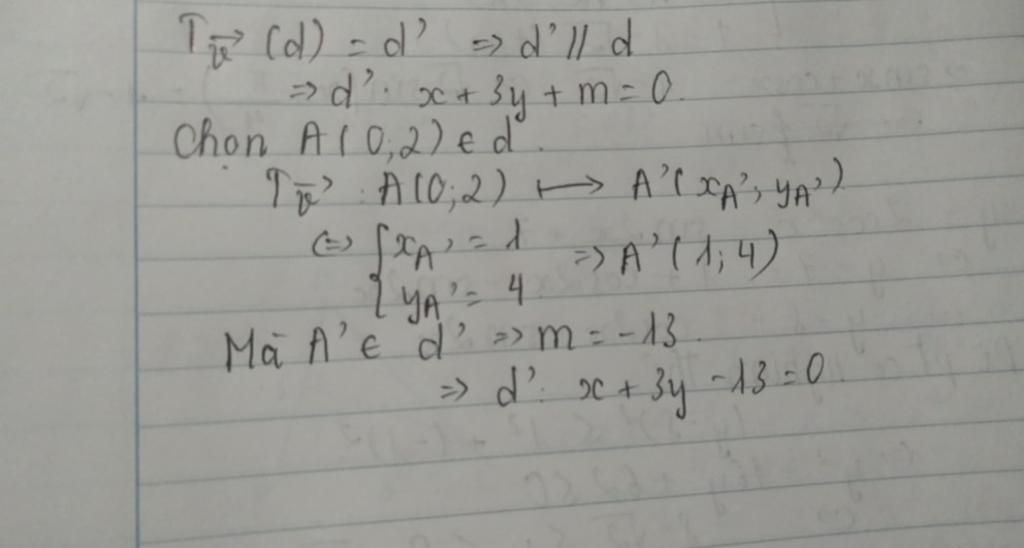 T_{\vec{v}} (d) = d' => d' // d
=> d': x + 3y + m = 0.
Chọn A(0;2) ∈ d.
T_{\vec{v}} : A(0;2) ⟼ A'(x_{A'}; y_{A'})
<=> { x_{A'} = 1 => A'(1; 4)
y_{A'} = 4
Mà A' ∈ d' => m = -13.
=> d': x + 3y - 13 = 0